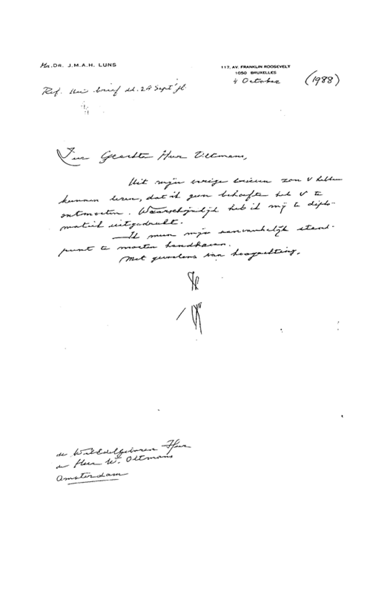 Mr. DR. J.M.A.H. LUNS
117, AV. FRANKLIN ROOSEVELT
1050 BRUXELLES
4 Octobre (1988)
Ref. Uw brief d.d. 28 Sept jl.
Zeer Geachte Heer Oltmans,
Uit mijn vorige brieven zou U hebben
kunnen leren, dat ik geen behoefte heb U te
ontmoeten. Waarschijnlijk heb ik mij te diplo-
matiek uitgedrukt.
Ik meen mijn aanvankelijk stand-
punt te moeten handhaven.
Met gevoelens van hoogachting,
de Weledelgeboren Heer
de Heer W. Oltmans
Amsterdam